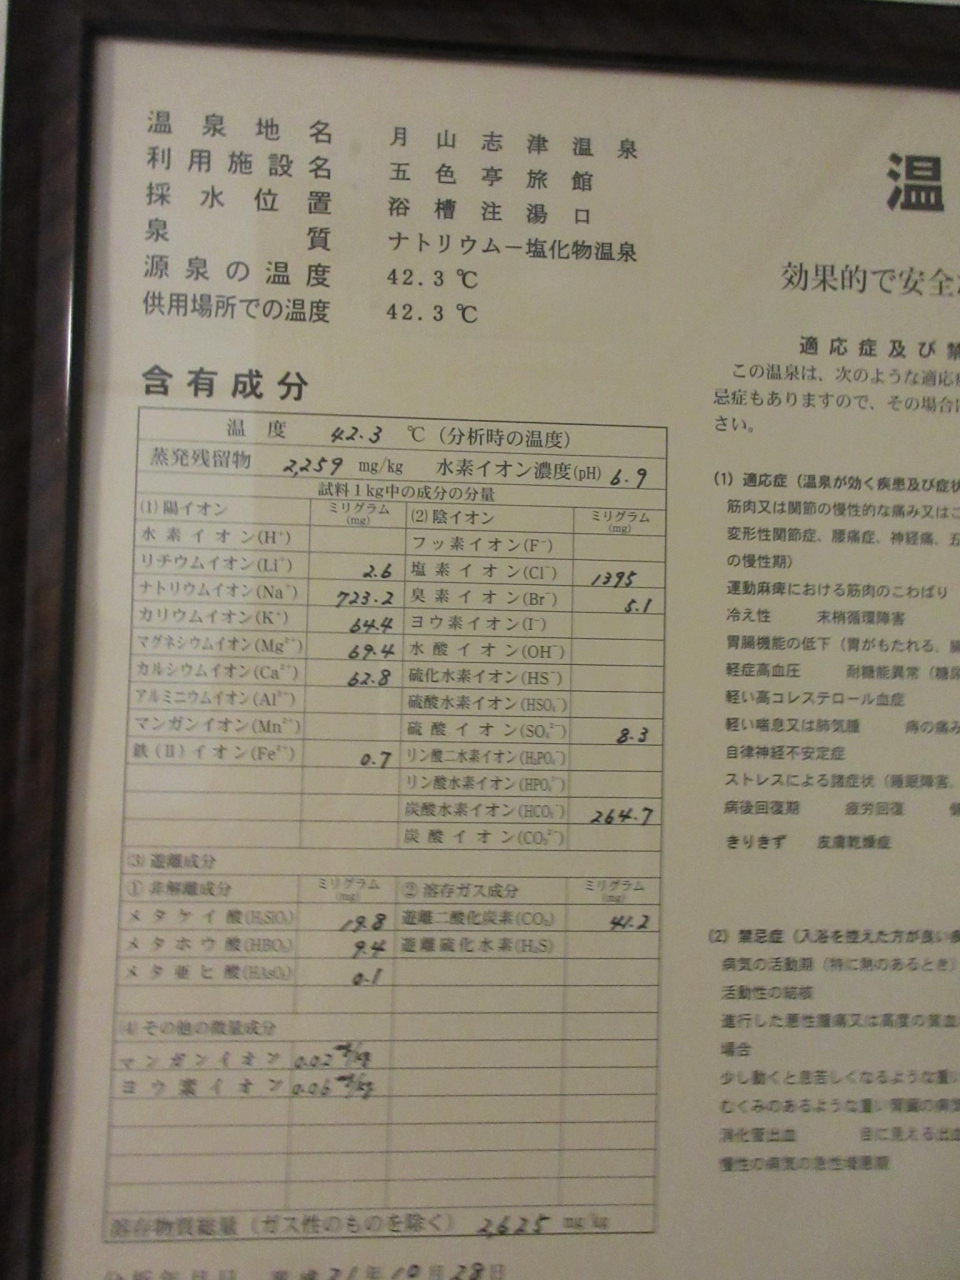 温泉地名 月山志津温泉
利用施設名 五色亭旅館
採水位置 浴槽注湯口
泉質 ナトリウム－塩化物温泉
源泉の温度 42.3 ℃
供用場所での温度 42.3 ℃
含有成分
温度 42.3 ℃（分析時の温度）
蒸発残留物 2,259 mg/kg 水素イオン濃度(pH) 6.9
試料１kg中の成分の分量
(1) 陽イオン ミリグラム(mg) (2) 陰イオン ミリグラム(mg)
水素イオン(H⁺) フッ素イオン(F⁻)
リチウムイオン(Li⁺) 2.6 塩素イオン(Cl⁻) 1395
ナトリウムイオン(Na⁺) 723.2 臭素イオン(Br⁻) 5.1
カリウムイオン(K⁺) 64.4 ヨウ素イオン(I⁻)
マグネシウムイオン(Mg²⁺) 69.4 水酸イオン(OH⁻)
カルシウムイオン(Ca²⁺) 62.8 硫化水素イオン(HS⁻)
アルミニウムイオン(Al³⁺) 硫酸水素イオン(HSO₄⁻)
マンガンイオン(Mn²⁺) 硫酸イオン(SO₄²⁻) 8.3
鉄(II)イオン(Fe²⁺) 0.7 リン酸二水素イオン(H₂PO₄⁻)
リン酸水素イオン(HPO₄²⁻)
炭酸水素イオン(HCO₃⁻) 264.7
炭酸イオン(CO₃²⁻)
(3) 遊離成分
① 非解離成分 ミリグラム(mg) ② 溶存ガス成分 ミリグラム(mg)
メタケイ酸(H₂SiO₃) 19.8 遊離二酸化炭素(CO₂) 41.2
メタホウ酸(HBO₂) 9.4 遊離硫化水素(H₂S)
メタ亜ヒ酸(HAsO₂) 0.1
(4) その他の微量成分
マンガンイオン 0.02 mg/kg
ヨウ素イオン 0.06 mg/kg
溶存物質総量（ガス性のものを除く） 2,625 mg/kg
分析年月日 平成21年10月28日
温
効果的で安全
適応症及び禁
この温泉は、次のような適応
忌症もありますので、その場合
さい。
(1) 適応症（温泉が効く疾患及び症状
筋肉又は関節の慢性的な痛み又はこ
変形性関節症、腰痛症、神経痛、五
の慢性期）
運動麻痺における筋肉のこわばり
冷え性 末梢循環障害
胃腸機能の低下（胃がもたれる、腸
軽症高血圧 耐糖能異常（糖尿
軽い高コレステロール血症
軽い喘息又は肺気腫 痔の痛み
自律神経不安定症
ストレスによる諸症状（睡眠障害、
病後回復期 疲労回復 健
きりきず 皮膚乾燥症
(2) 禁忌症（入浴を控えた方が良い疾
病気の活動期（特に熱のあるとき）
活動性の結核
進行した悪性腫瘍又は高度の貧血
場合
少し動くと息苦しくなるような重い
むくみのあるような重い腎臓の病気
消化管出血 目に見える出血
慢性の病気の急性増悪期